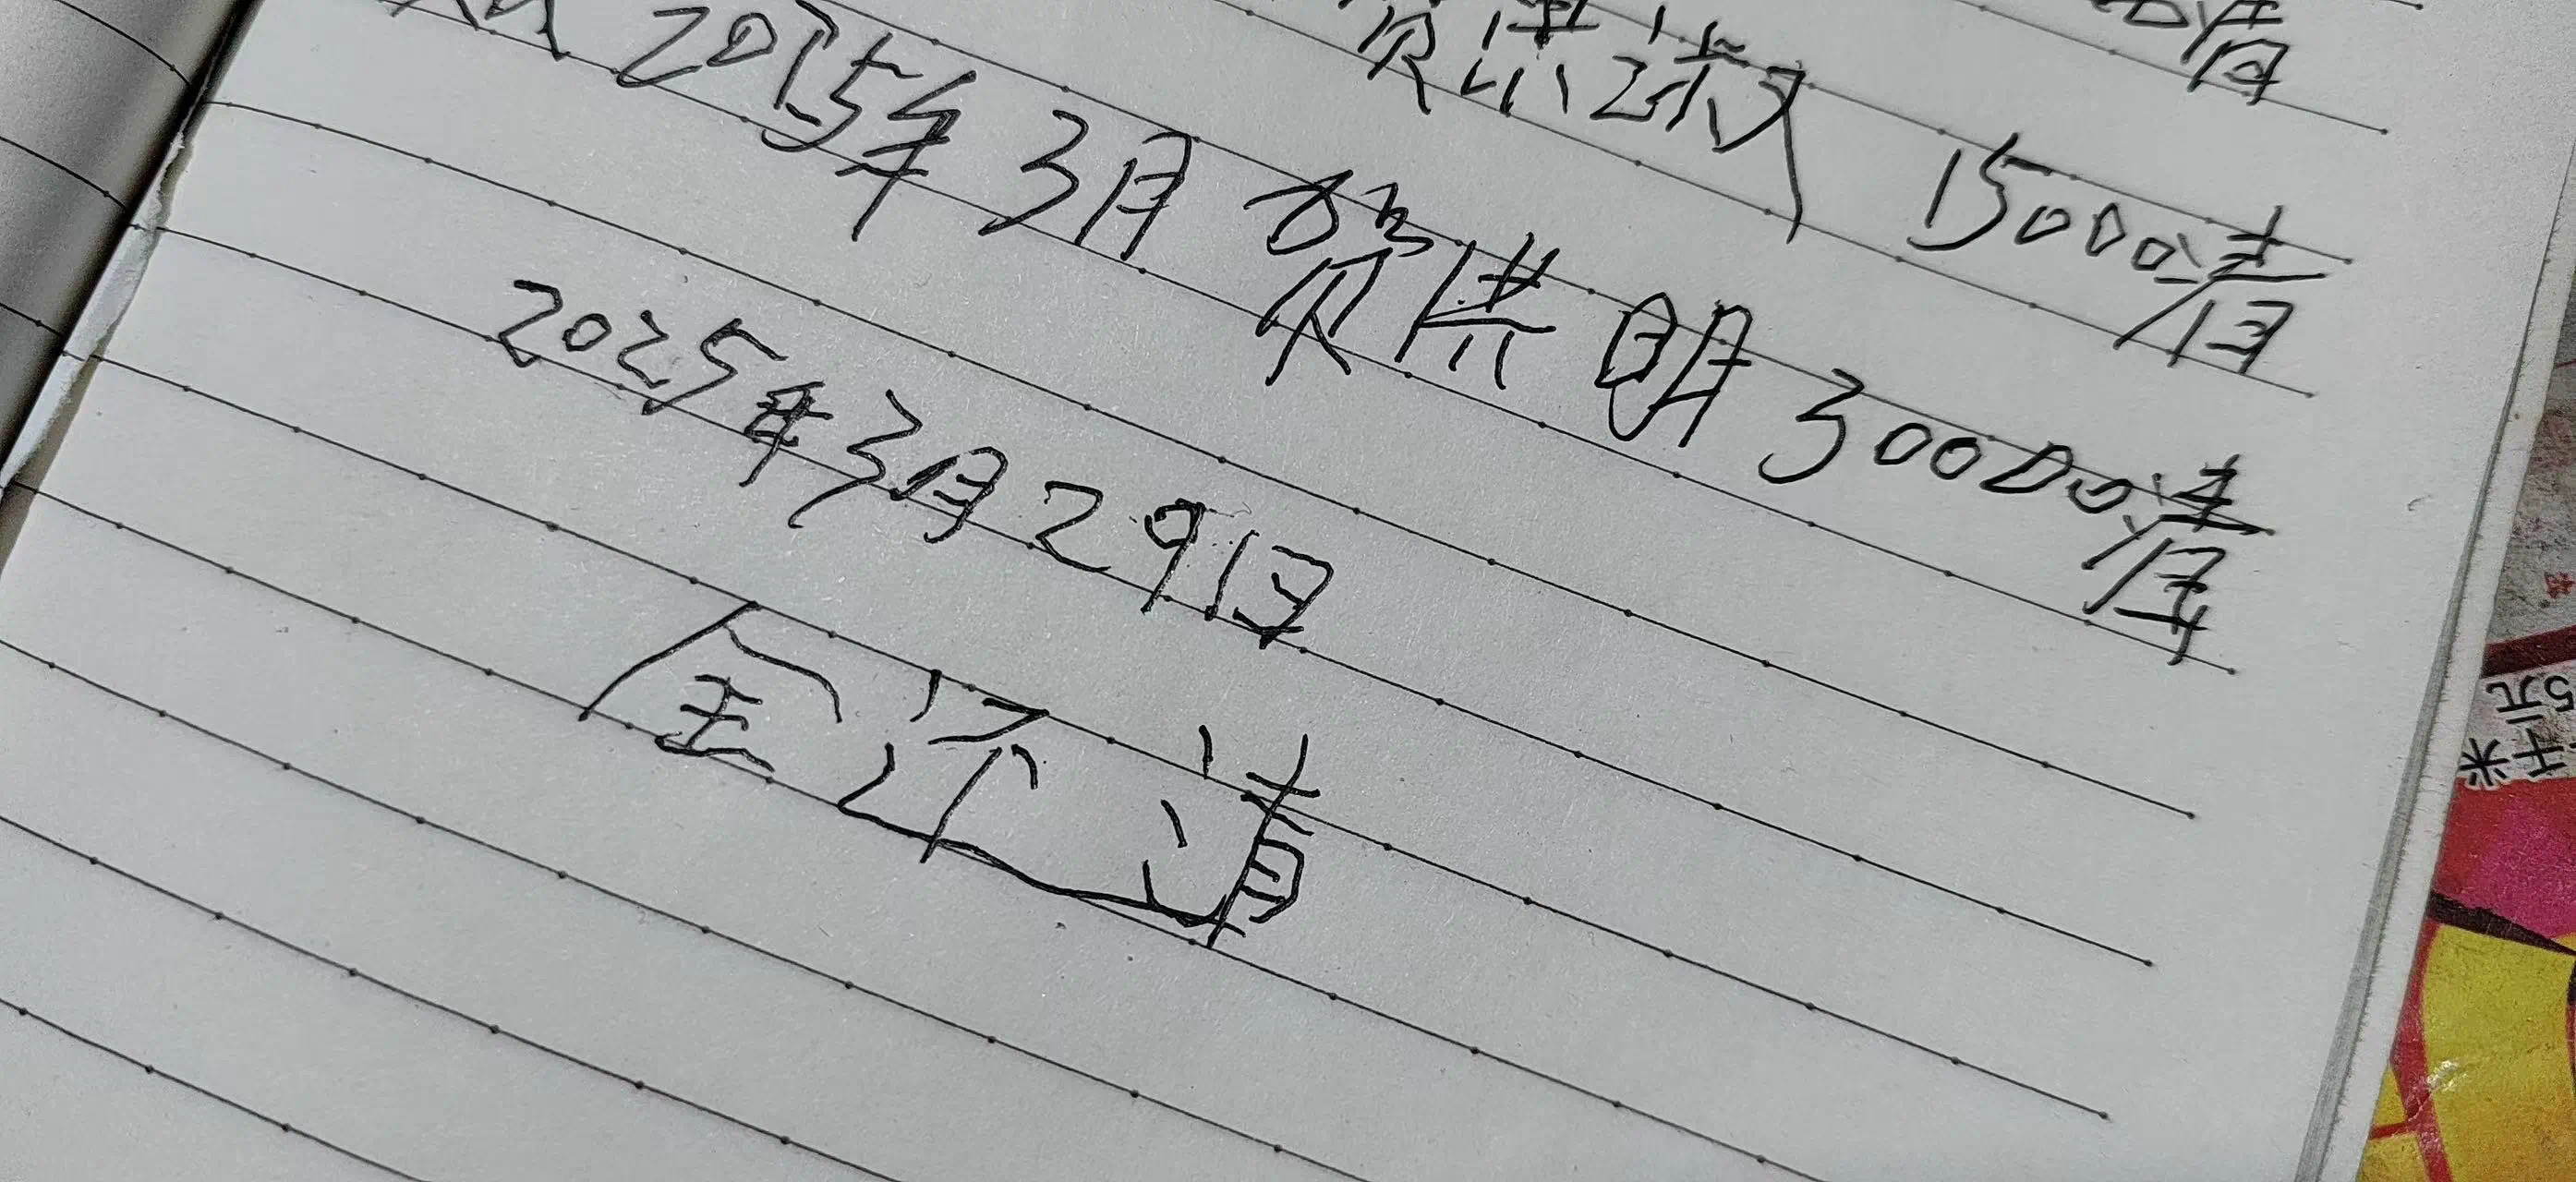 15000清
2025年3月贺洪明30000清
2025年3月29日
全还清
5元
千米